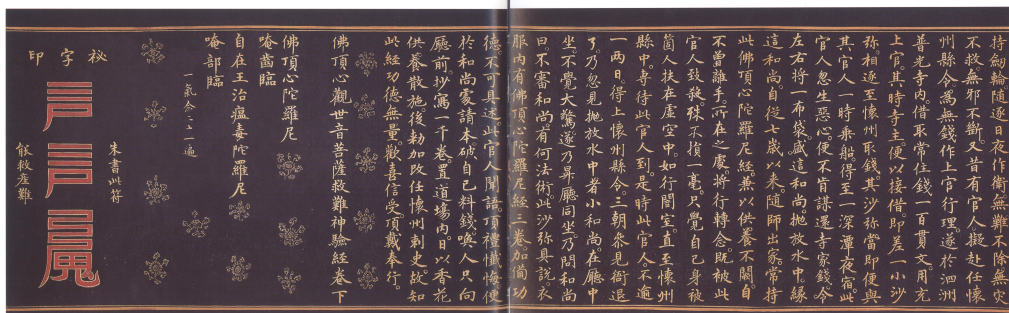 持劔輪隨逐日夜作衛無難不除無灾
不救無邪不斷又昔有一官人擬赴任懷
州縣令為無錢作上官行理遂於泗洲
普光寺內借取常住錢一百貫文用充
上官其時寺主便以接借即差一小沙
弥相逐至懷州取錢其沙弥當即便與
其官人一時乘船得至一深潭夜宿此
官人忽生惡心便不肯謀還寺家錢令
左右將一布袋盛這和尚拋放水中緣
這和尚自從七歲以來隨師出家常持
此佛頂心陀羅尼經兼以供養不闕自
不曾離手所在之處將行轉念既被此
官人致殺殊不損一毫只覺自己身被
箇人扶在虛空中如行闇室直至懷州
縣中專待此官人到是時此官人不逾
一兩日得上懷州縣令三朝參見衙退
了乃忽見拋放水中者小和尚在廳中
坐不覺大驚遂乃昇廳同坐乃問和尚
曰不審和尚有何法術此沙弥具說衣
服內有佛頂心陀羅尼經三卷加備功
德不可具述此官人聞語頂禮懺悔便
於和尚處請本破自己料錢喚人只向
廳前抄寫一千卷置道場內日以香花
供養散施後勅加改任懷州刺史故知
此經功德無量歡喜信受頂戴奉行
佛頂心觀世音菩薩救難神驗經卷下
佛頂心陀羅尼
唵齒臨
自在王治瘟毒陀羅尼
唵部臨
一氣念二十一遍
秘字印
朱書此符
能救產難